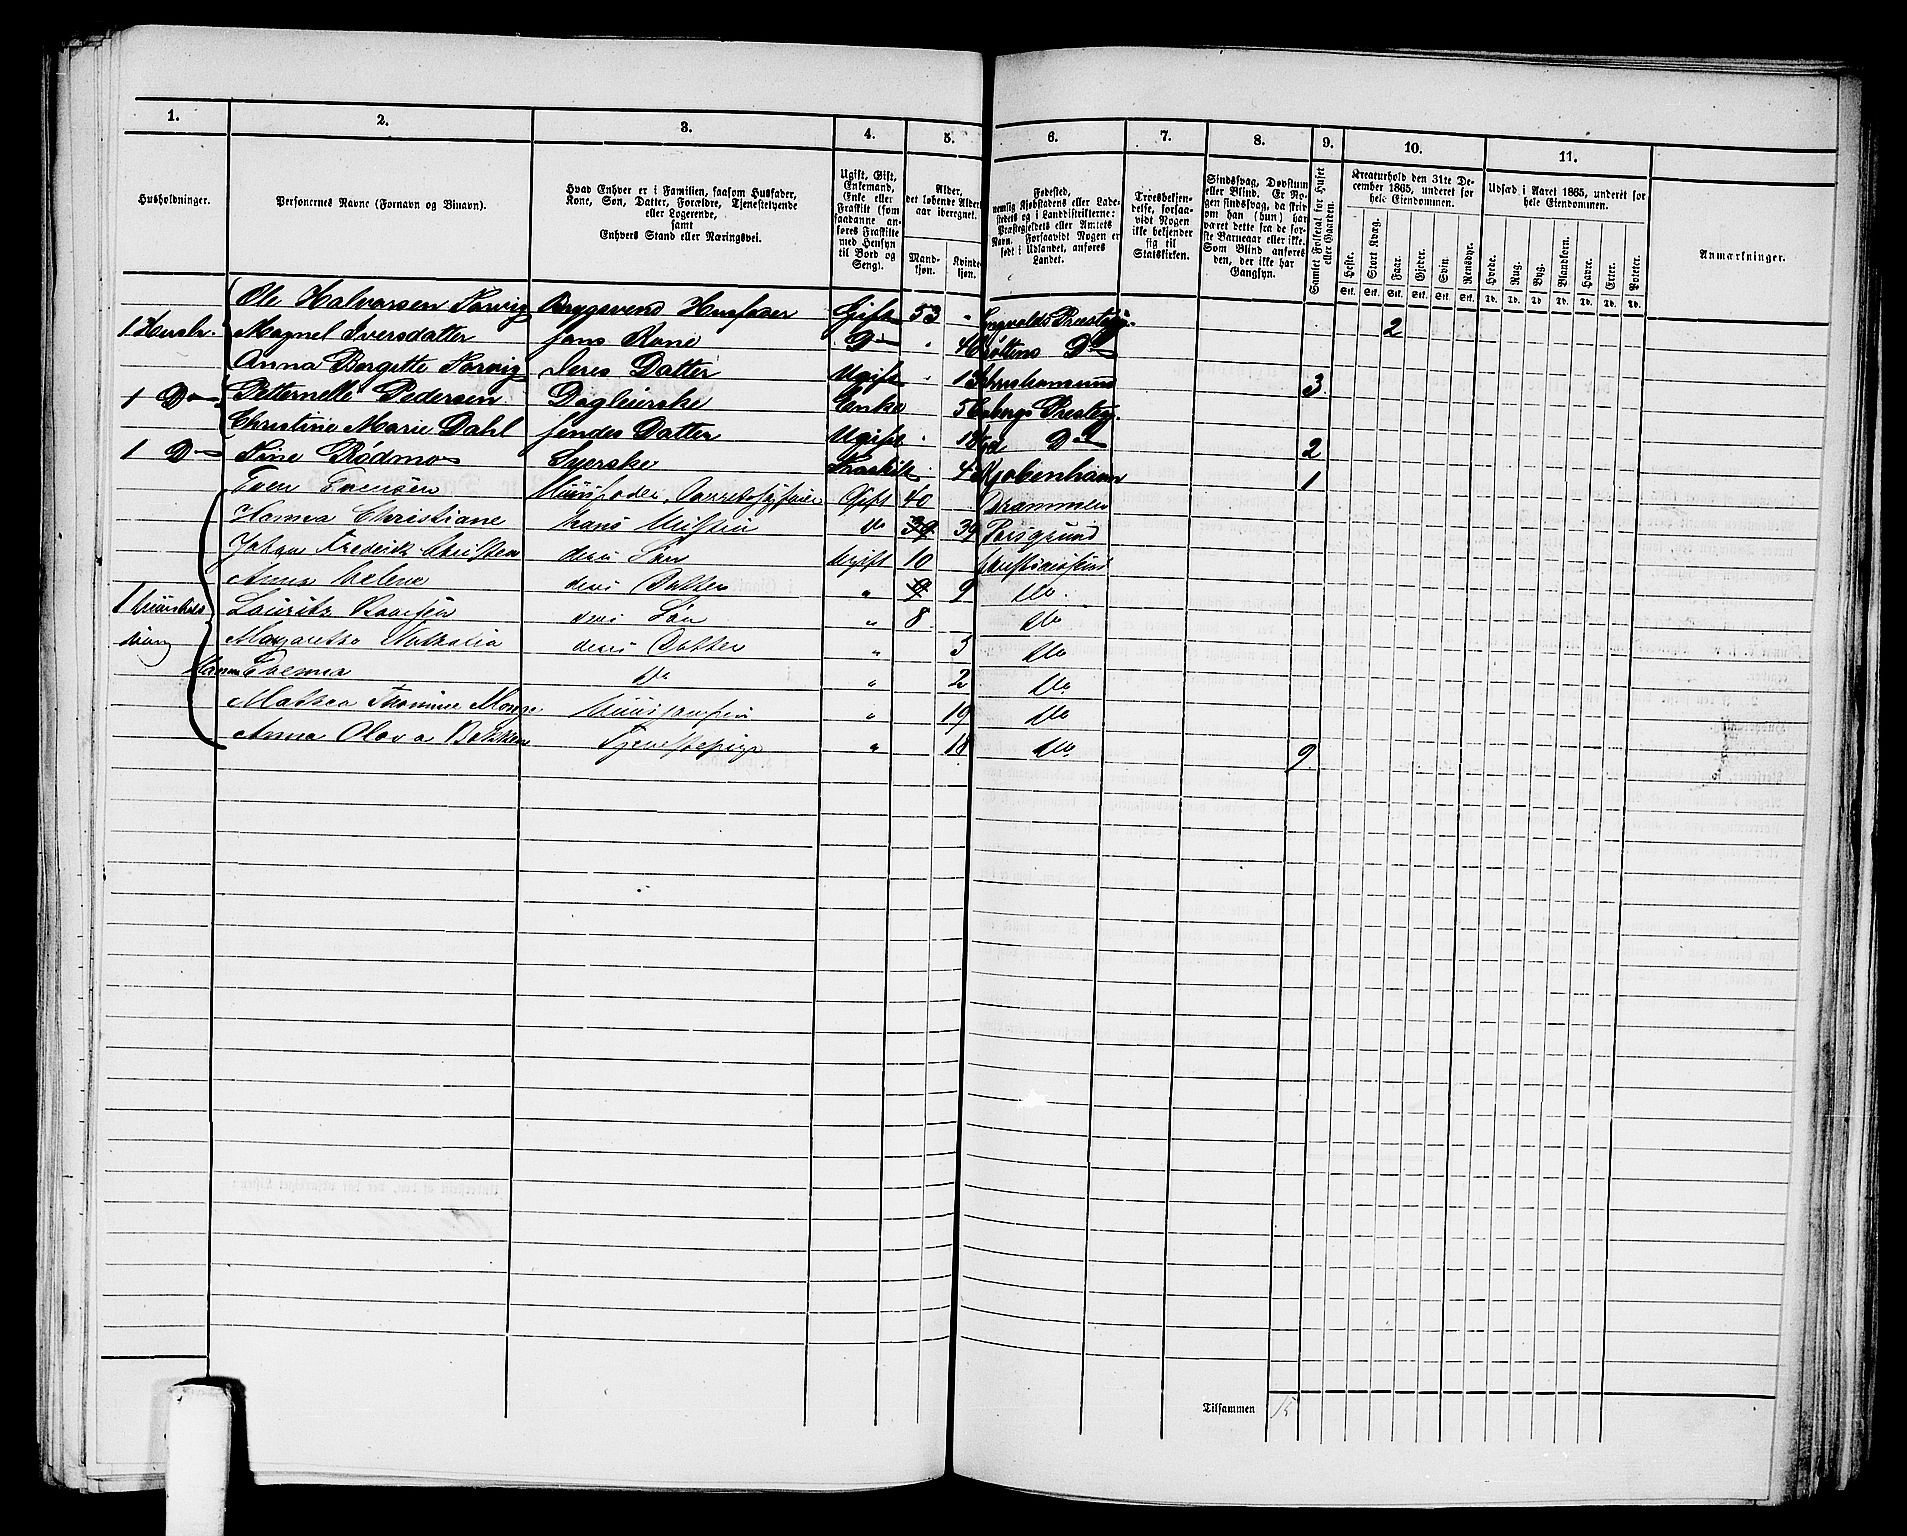 1. 2. 3. 4. 5. 6. 7. 8. 9. 10. 11.
Husholdninger.
Personernes Navne (Fornavn og Binavn).
Hvad Enhver er i Familien, saasom Husfader,
Kone, Søn, Datter, Forældre, Tjenestetyende
eller Logerende,
samt
Enhvers Stand eller Næringsvei.
Ugift, Gift,
Enkemand,
Enke eller
Fraskilt (som
saadanne an-
føres Fraskilte
med Hensyn
til Bord og
Seng).
Alder,
det løbende Alders-
aar iberegnet.
Mand-
kjøn.
Kvinde-
kjøn.
Fødested,
nemlig Kjøbstadens eller Lade-
stedets og i Landdistrikterne:
Præstegjeldets eller Amtets
Navn. Forsaavidt Nogen er
født i Udlandet, anføres
Landet.
Troesbekjen-
delse, forsaa-
vidt Nogen
ikke bekjender
sig til
Statskirken.
Sindssvag, Døvstum
eller Blind. Er No-
gen sindssvag, da skriv
om han (hun) har
været dette fra de før-
ste Barneaar eller ikke.
Som Blind anføres
den, der ikke har
Gangsyn.
Samlet Folketal for Huset
eller Gaarden.
Kreaturhold den 31te De-
cember 1865, underet for
hele Eiendommen.
Heste. Stort Kvæg. Faar. Gjeder. Svin. Rensdyr.
Stk. Stk. Stk. Stk. Stk. Stk.
Udsæd i Aaret 1865, underet for
hele Eiendommen.
Hvede. Rug. Byg. Blandkorn. Havre. Erter. Poteter.
Td. Td. Td. Td. Td. Td. Td.
Anmærkninger.
Ole Halvorsen Norvig Brygsvend Husfader Gift 53 Præstegj. 2
1 Hush. Magnel Iversdatter hans Kone Do
Anna Borgette Norvig deres Datter Ugift 3
1 Do Petternelle Pedersen Enke Præstegj.
Christine Marie Dahl hendes Datter Ugift Do 2
1 Do Sine Rødmo Syerske Fraskilt Kjøbenhavn 1
Even Evensen Gift 40 Drammen
Hanna Christiane hans do 39 39 Porsgrund
Johan Frederik deres Søn Ugift 10
Anna Helene deres Datter " 9 9 do
1 Lauritz deres Søn " 8 do
Margarethe Nathalia deres Datter " 3 do
Hanna do " 2 do
Mathea Thomine " 19 do
Anna Olava Bakken Tjenestepige " 18 do 9
Tilsammen 15